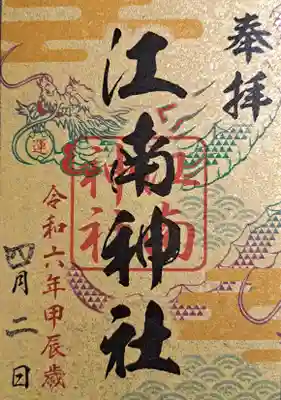 奉拝
江南神社
江南神社
令和六年甲辰歳
四月二日
運